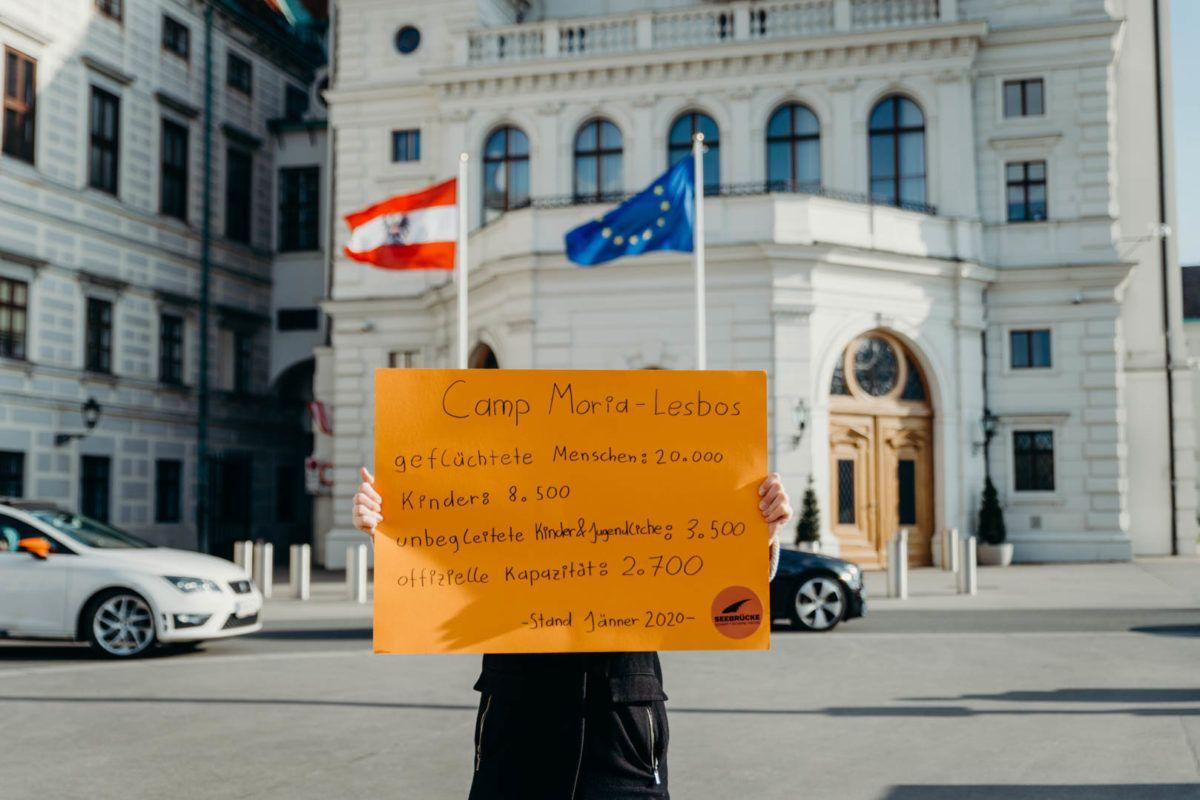 Camp Moria - Lesbos
geflüchtete Menschen: 20.000
Kinder: 8.500
unbegleitete Kinder & Jugendliche: 3.500
offizielle Kapazität: 2.700
-Stand Jänner 2020-
SEEBRÜCKE